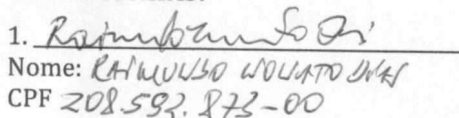 1.
Nome: RAIMUNDO NONATO DIAS
CPF 208.592.873-00